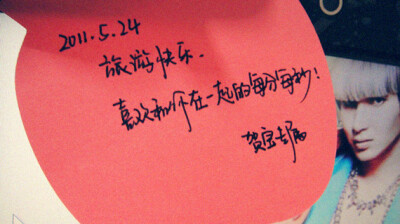 2011.5.24
旅游快乐.
喜欢和你在一起的每分每秒!